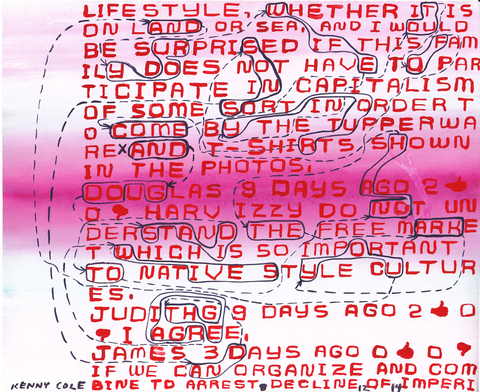 LIFESTYLE, WHETHER IT IS
ON LAND OR SEA, AND I WOULD
BE SURPRISED IF THIS FAM
ILY DOES NOT HAVE TO PAR
TICIPATE IN CAPITALISM
OF SOME SORT IN ORDER T
O COME BY THE TUPPERWA
RE AND T-SHIRTS SHOWN
IN THE PHOTOS.
DOUGLAS 9 DAYS AGO 2 👍
0 👎 HARV IZZY DO NOT UN
DERSTAND THE FREE MARKE
T WHICH IS SO IMPORTANT
TO NATIVE STYLE CULTUR
ES.
JUDITHG 9 DAYS AGO 2 👍 0
👎 I AGREE.
JAMES 3 DAYS AGO 0 👍 0 👎
IF WE CAN ORGANIZE AND COM
BINE TO ARREST DECLINE OF IMPERI
KENNY COLE